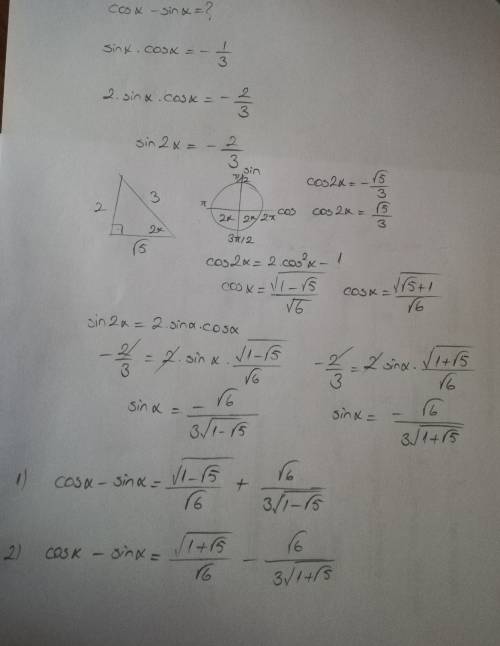 cosx - sinx = ?
sinx · cosx = - 1/3
2 · sinx · cosx = - 2/3
sin2x = - 2/3
2 3 2x √5
π/2 sin π cos 2x 2x 2π 3π/2
cos2x = - √5/3 cos2x = √5/3
cos2x = 2 · cos²x - 1
cosx = √(1-√5)/√6 cosx = √(√5+1)/√6
sin2x = 2 · sinα · cosα
- 2/3 = 2 · sinx · √(1-√5)/√6 - 2/3 = 2 sinα · √(1+√5)/√6
sinα = -√6/(3√(1-√5)) sinα = - √6/(3√(1+√5))
1) cosα - sinα = √(1-√5)/√6 + √6/(3√(1-√5))
2) cosα - sinα = √(1+√5)/√6 - √6/(3√(1+√5))